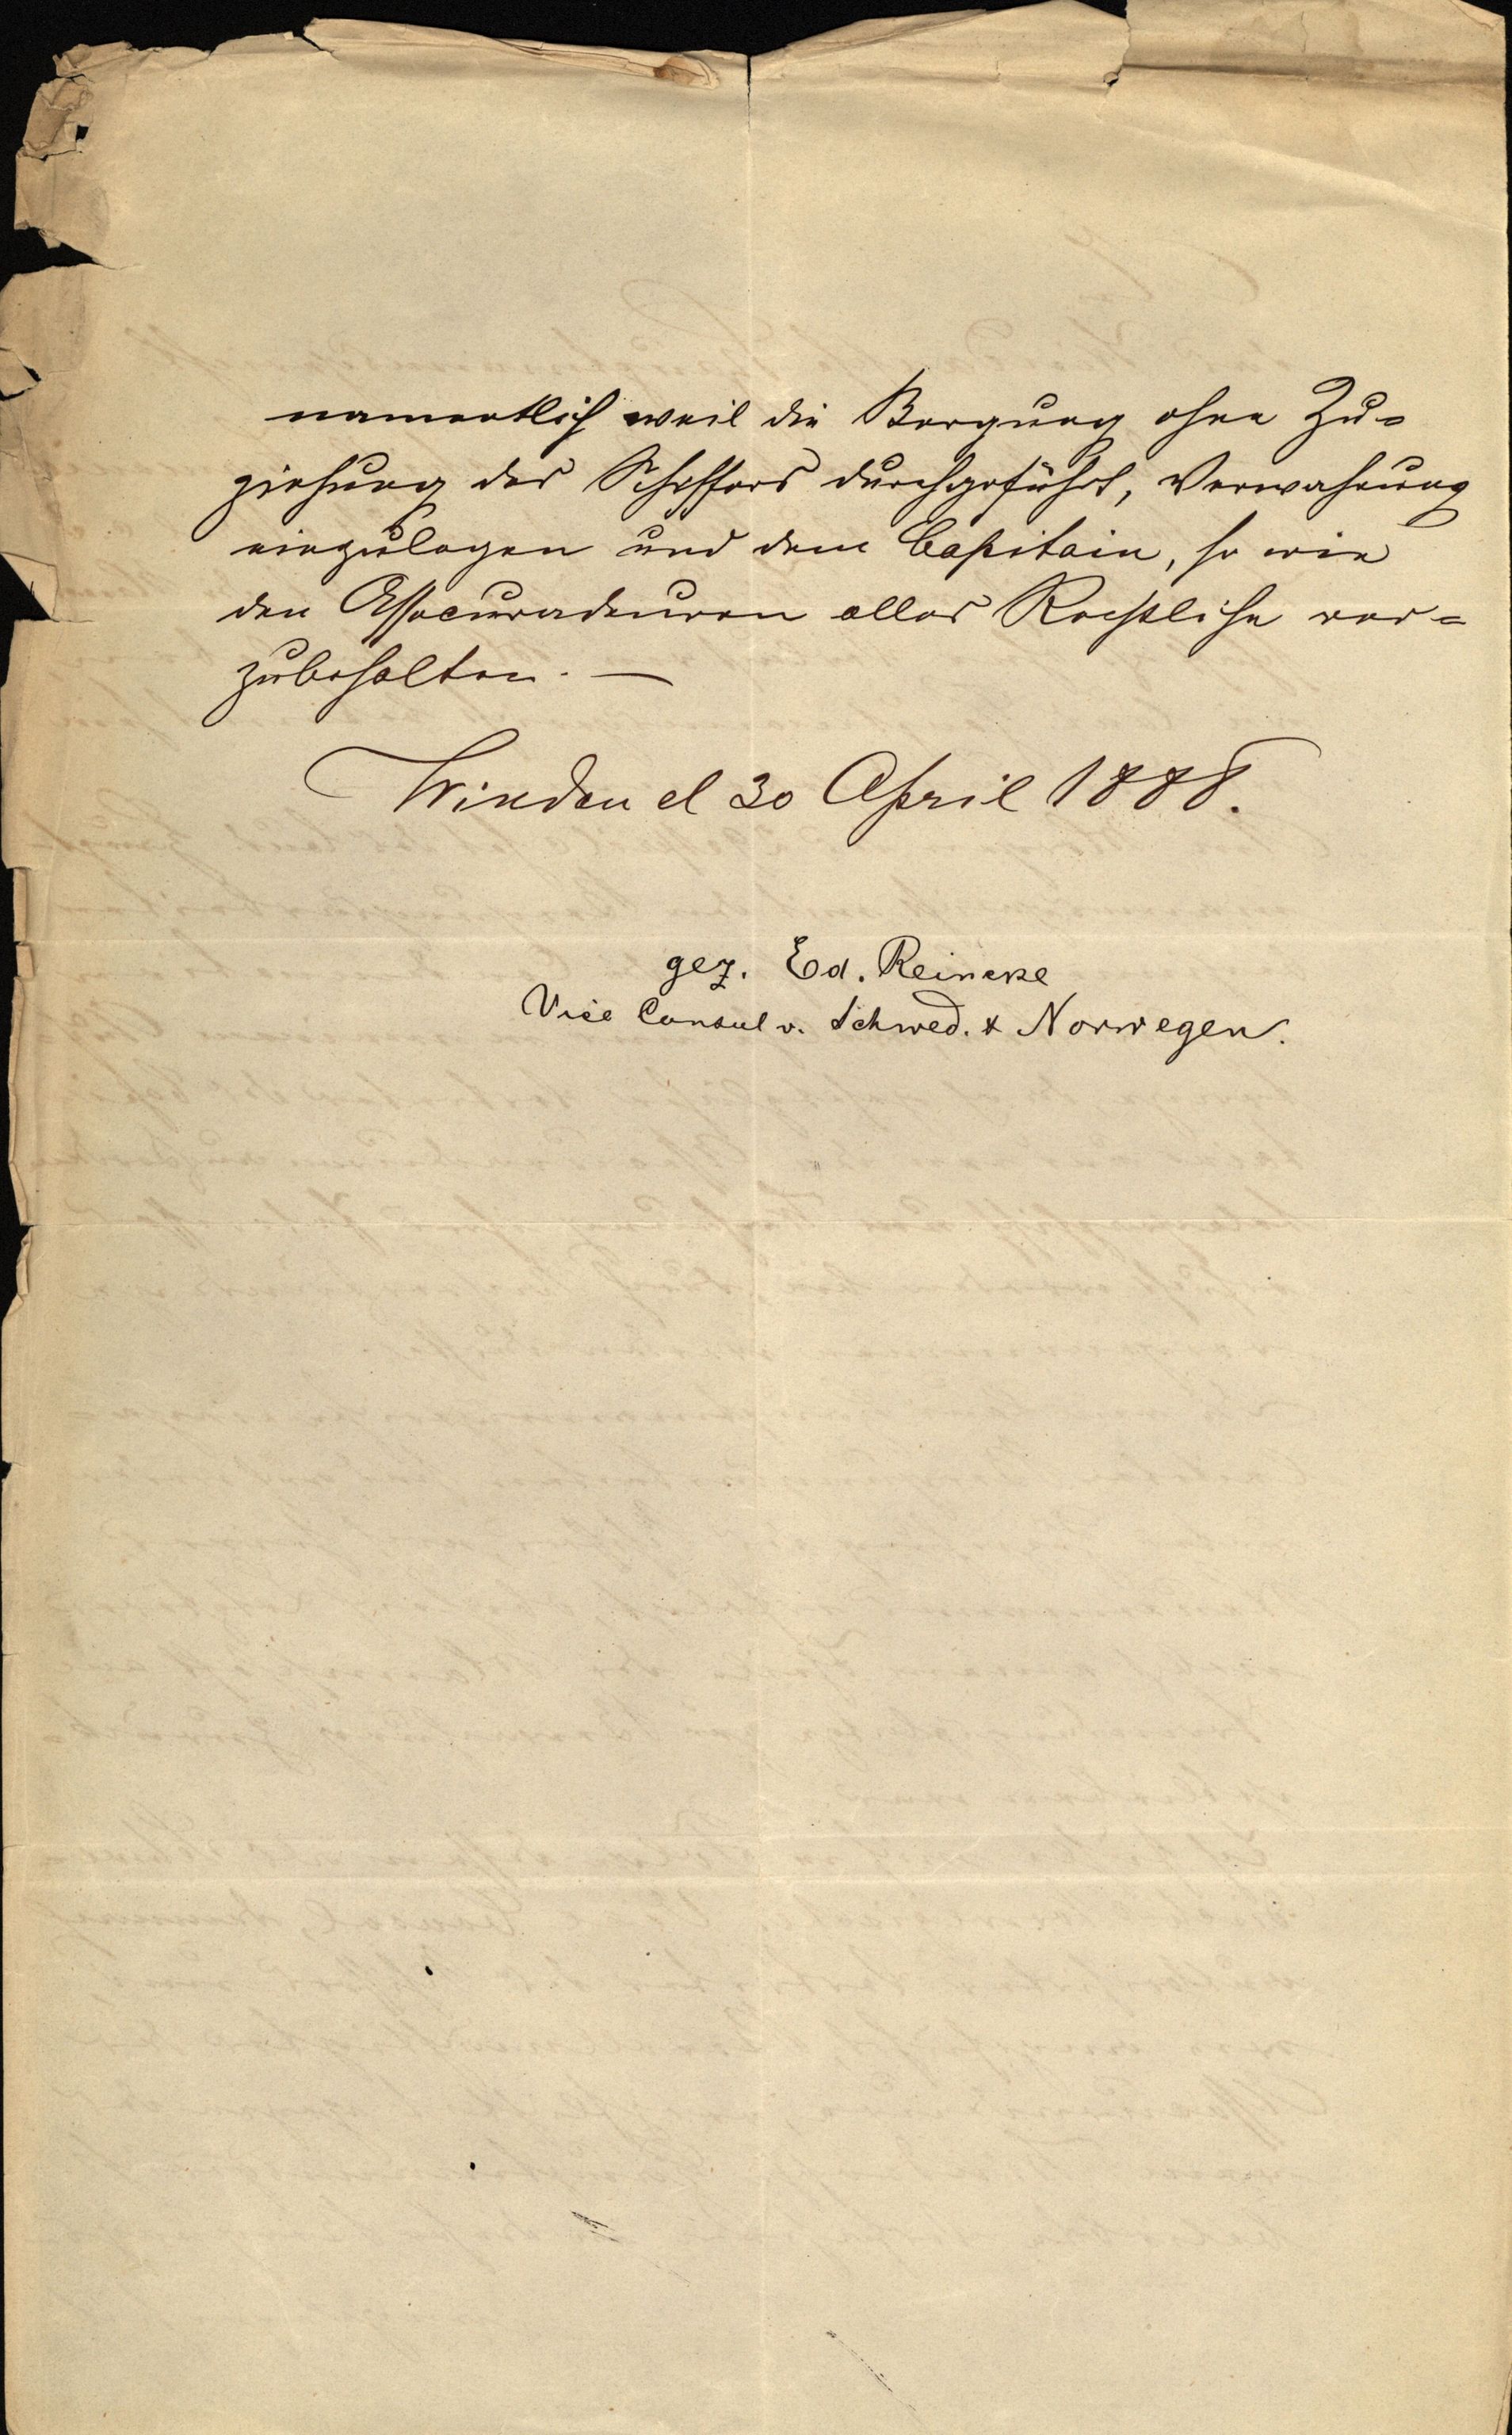 namentlich weil die Bergung ohne Zu=
ziehung des Schiffers durchgeführt, Verwahrung
einzulegen und dem Capitain, so wie
den Assecuradeuren alles Rechtliche vor=
zubehalten. —
Windau d 30 April 1888.
gez. Ed. Reincke
Vice Consul v. Schwed. & Norwegen.